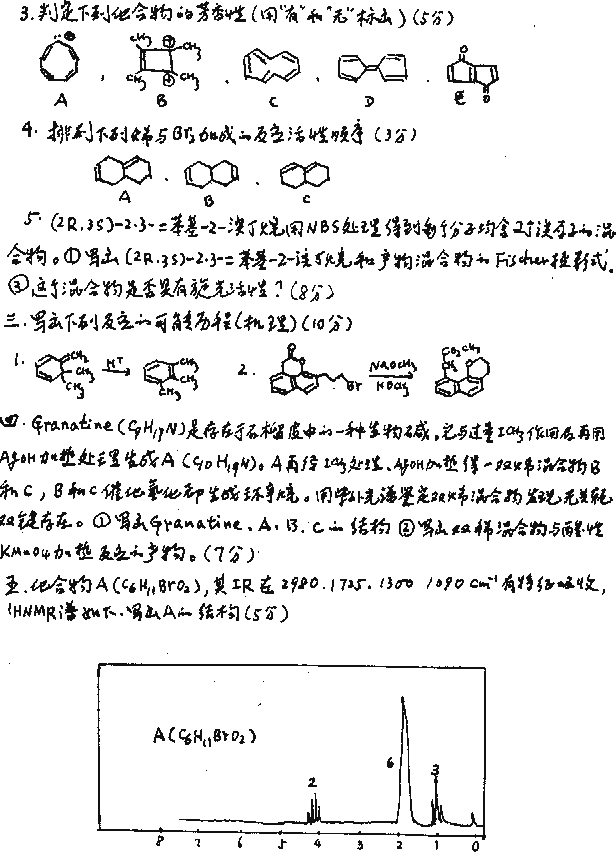 3. 判定下列化合物的芳香性(用"有"和"无"标出)(5分)
CH₃ CH₃
CH₃ CH₃
A B C D E
4. 排列下列烯与Br₂加成的反应活性顺序(3分)
A B C
5. (2R,3S)-2,3-二苯基-2-溴丁烷用NBS处理得到每个分子均含2个溴原子的混
合物。①写出(2R,3S)-2,3-二苯基-2-溴丁烷和产物混合物的Fischer投影式。
②这个混合物是否具有旋光活性?(8分)
三. 写出下列反应的可能历程(机理)(10分)
1. CH₂ CH₃ CH₃ H⁺ CH₃ CH₃ CH₃ 2. O O Br NaOCH₃ HOCH₃ CO₂CH₃ CH O
四. Granatine (C₉H₁₇N)是存在于石榴皮中的一种生物碱,它与过量ICH₃作用后再用
AgOH加热处理生成A(C₁₀H₁₉N)。A再经ICH₃处理、AgOH加热得一双烯混合物B
和C,B和C催化氢化却生成环辛烷。用紫外光谱鉴定双烯混合物发现无共轭
双键存在。①写出Granatine、A、B、C的结构②写出双烯混合物与酸性
KMnO₄加热反应的产物。(7分)
五. 化合物A(C₆H₁₁BrO₂),其IR在2980、1725、1300 1090cm⁻¹有特征吸收,
¹HNMR谱如下.写出A的结构(5分)
A(C₆H₁₁BrO₂)
2 6 3
8 7 6 5 4 3 2 1 0